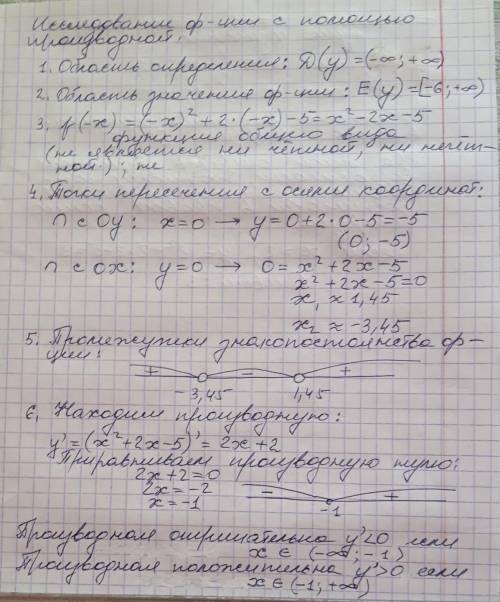 Исследование ф-ции с помощью
производной.
1. Область определения: D(y)=(-∞;+∞)
2. Область значения ф-ции: E(y)=[-6;+∞)
3. f(-x)=(-x)²+2·(-x)-5=x²-2x-5
функция общего вида
(не является ни чётной, ни нечёт-
ной); не
4. Точки пересечения с осями координат:
∩ с Oy: x=0 → y=0+2·0-5=-5
(0;-5)
∩ с ox: y=0 → 0=x²+2x-5
x²+2x-5=0
x₁≈1,45
x₂≈-3,45
5. Промежутки знакопостоянства ф-
ции:
+ - +
-3,45 1,45
6. Находим производную:
y'=(x²+2x-5)'=2x+2
Приравниваем производную нулю:
2x+2=0
2x=-2
x=-1
- +
-1
Производная отрицательна y'<0 если
x∈(-∞;-1)
Производная положительна y'>0 если
x∈(-1;+∞)